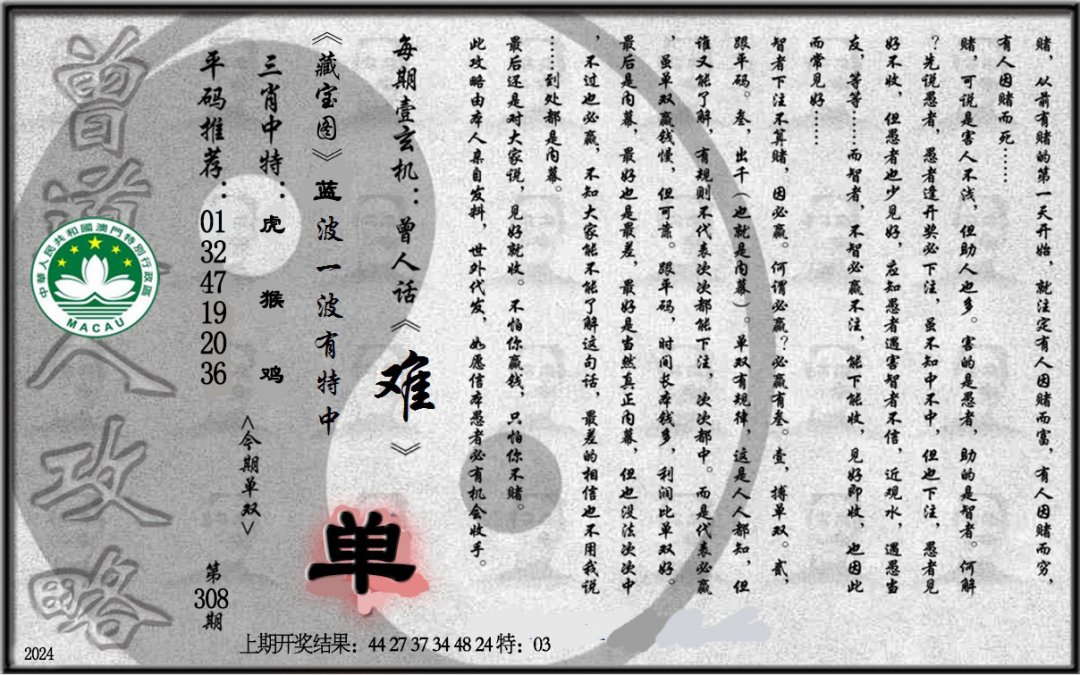 赌，从前有赌的第一天开始，就注定有人因赌而富，有人因赌而穷，
有人因赌而死……
赌，可说是害人不浅，但助人也多。害的是愚者，助的是智者。何解
？先说愚者，愚者逢开奖必下注，虽不知中不中，但也下注，愚者见
好不收，但愚者也少见好，应知愚者遇害智者不信，近观水，遇愚当
友，等等……而智者，不智必赢不注，能下能收，见好即收，也因此
而常见好……
智者下注不算赌，因必赢。何谓必赢？必赢有叁。壹，搏单双。贰，
跟平码。叁，出千（也就是内幕）。单双有规律，这是人人都知，但
谁又能了解，有规则不代表次次都能下注，次次都中。而是代表必赢
，虽单双赢钱慢，但可靠。跟平码，时间长本钱多，利润比单双好。
最后是内幕，最好也是最差，最好是当然真正内幕，但也没法次次中
，不过也必赢，不知大家能不能了解这句话，最差的相信也不用我说
……到处都是内幕。
最后还是对大家说，见好就收。不怕你赢钱，只怕你不赌。
此攻略由本人亲自发料，世外代发，如愿信本愚者必有机会收手。
每期壹玄机：曾人话《难》
《藏宝图》蓝波一波有特中
单
三肖中特：虎 猴 鸡
<今期单双>
平码推荐：01 32 47 19 20 36
第308期
曾道人攻略
中華人民共和國澳門特別行政區
MACAU
上期开奖结果：44 27 37 34 48 24 特：03
2024